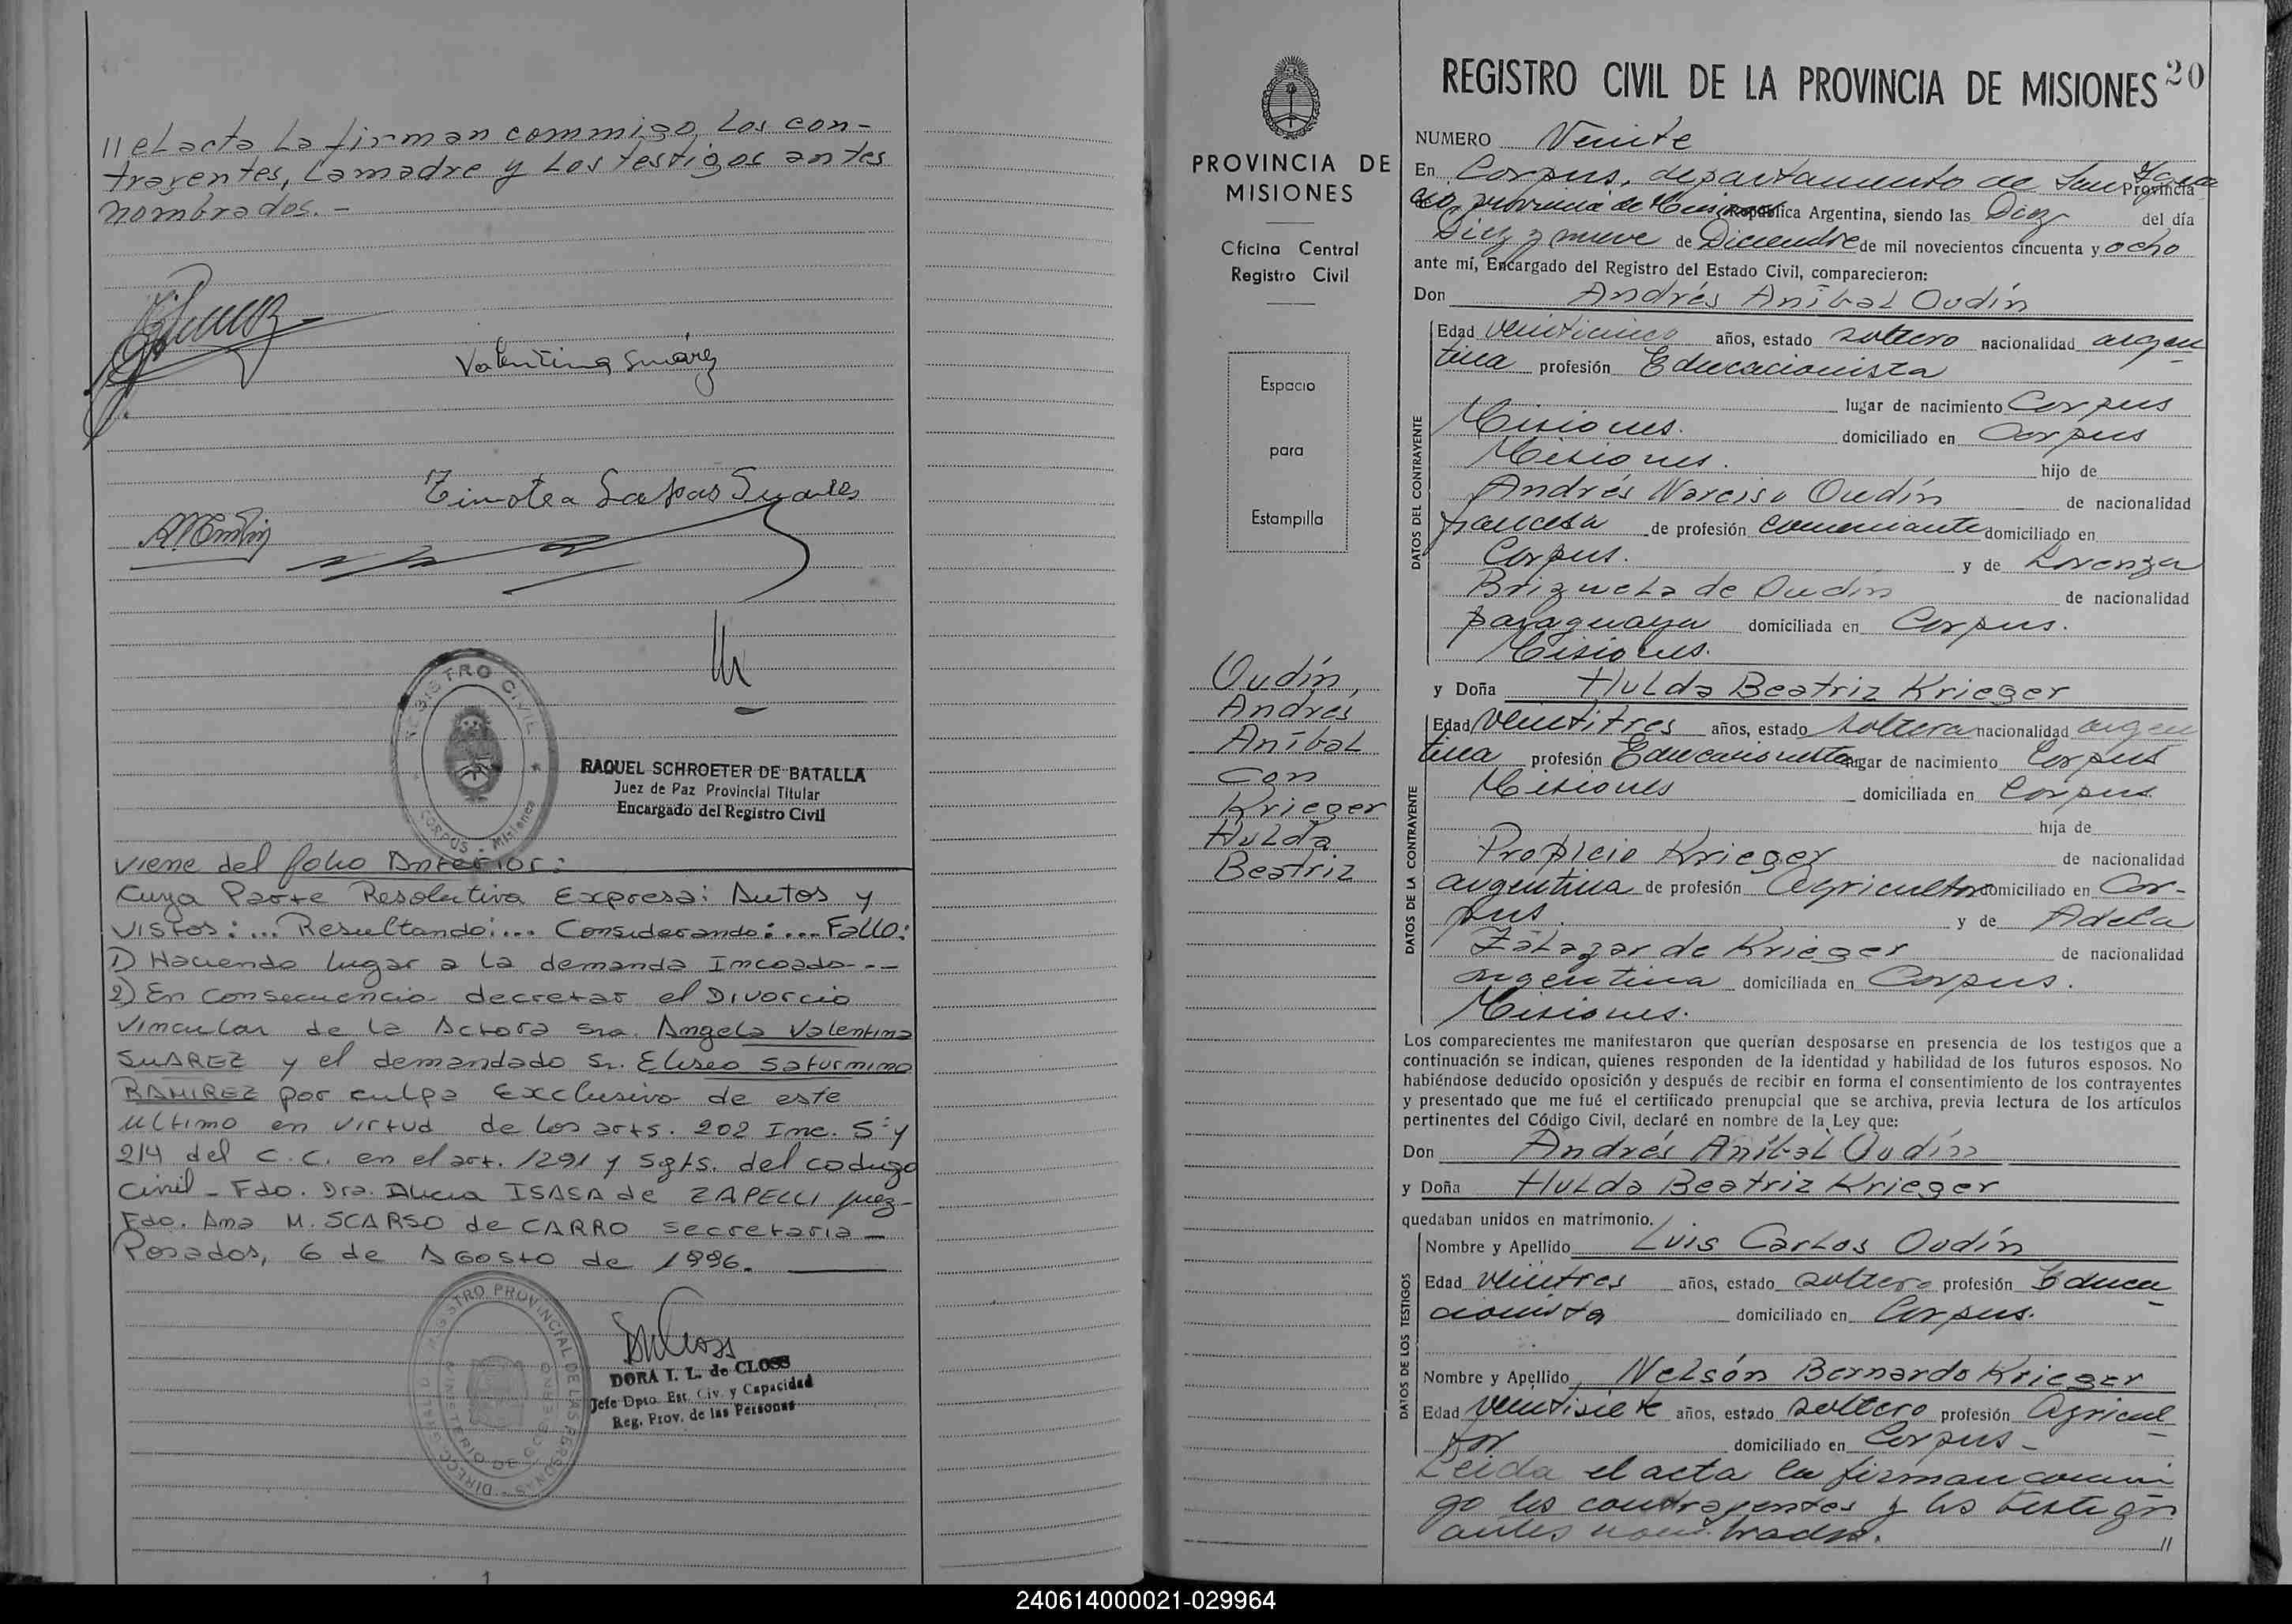 // el acta la firman commigo, los con-
trayentes, la madre y los testigos antes
nombrados. -
Valentina Suárez
Timotea Suares
REGISTRO CIVIL
CORPUS - Misiones
RAQUEL SCHROETER DE BATALLA
Juez de Paz Provincial Titular
Encargado del Registro Civil
Viene del folio Anterior:
Cuya Parte Resolutiva Expresa: Autos y
Vistos: ... Resultando: ... Considerando: ... Fallo:
1) Haciendo lugar a la demanda Incoada - - -
2) En Consecuencia decretar el Divorcio
Vincular de la Actora Sra. Angela Valentina
SUAREZ y el demandado Sr. Eliseo Saturnino
RAMIREZ por culpa Exclusiva de este
Ultimo en virtud de los arts. 202 Inc. 5º y
214 del C.C. en el art. 1291 y sgts. del codugo
Civil - Fdo. Dra. Alicia ISASA de ZAPELLI Juez -
Fdo. Ana M. SCARSO de CARRO Secretaria -
Posadas, 6 de Agosto de 1996.
DORA I. L. de CLOSS
Jefe Dpto. Est. Civ. y Capacidad
Reg. Prov. de las Personas
PROVINCIA DE
MISIONES
Oficina Central
Registro Civil
Espacio
para
Estampilla
Oudín,
Andrés
Aníbal
Con
Krieger
Hulda
Beatriz
REGISTRO CIVIL DE LA PROVINCIA DE MISIONES 20
NUMERO Veinte
En Corpus, departamento de San Igna Provincia
cio, provincia de Misiones República Argentina, siendo las Diez del día
Diez y nueve de Diciembre de mil novecientos cincuenta y ocho
ante mí, Encargado del Registro del Estado Civil, comparecieron:
Don Andrés Aníbal Oudín
DATOS DEL CONTRAYENTE
Edad veinticinco años, estado soltero nacionalidad argen
tina profesión Educacionista
lugar de nacimiento Corpus
Misiones. domiciliado en Corpus
Misiones. hijo de
Andrés Narciso Oudín de nacionalidad
francesa de profesión comerciante domiciliado en
Corpus. y de Lorenza
Brizuela de Oudín de nacionalidad
paraguaya domiciliada en Corpus.
Misiones.
y Doña Hulda Beatriz Krieger
DATOS DE LA CONTRAYENTE
Edad veintitres años, estado soltera nacionalidad argen
tina profesión Educacionista lugar de nacimiento Corpus
Misiones domiciliada en Corpus
hija de
Propicio Krieger de nacionalidad
argentina de profesión Agricultor domiciliado en Cor-
pus. y de Adela
Zalazar de Krieger de nacionalidad
argentina domiciliada en Corpus.
Misiones.
Los comparecientes me manifestaron que querían desposarse en presencia de los testigos que a
continuación se indican, quienes responden de la identidad y habilidad de los futuros esposos. No
habiéndose deducido oposición y después de recibir en forma el consentimiento de los contrayentes
y presentado que me fué el certificado prenupcial que se archiva, previa lectura de los artículos
pertinentes del Código Civil, declaré en nombre de la Ley que:
Don Andrés Aníbal Oudín
y Doña Hulda Beatriz Krieger
quedaban unidos en matrimonio.
DATOS DE LOS TESTIGOS
Nombre y Apellido Luis Carlos Oudín
Edad veintres años, estado soltero profesión Educa
cionista domiciliado en Corpus.
Nombre y Apellido Nelsón Bernardo Krieger
Edad veintisiete años, estado soltero profesión Agricul
tor domiciliado en Corpus -
Leida el acta la firman conmi
go los contrayentes y los testigos
antes nombrados. //
240614000021-029964